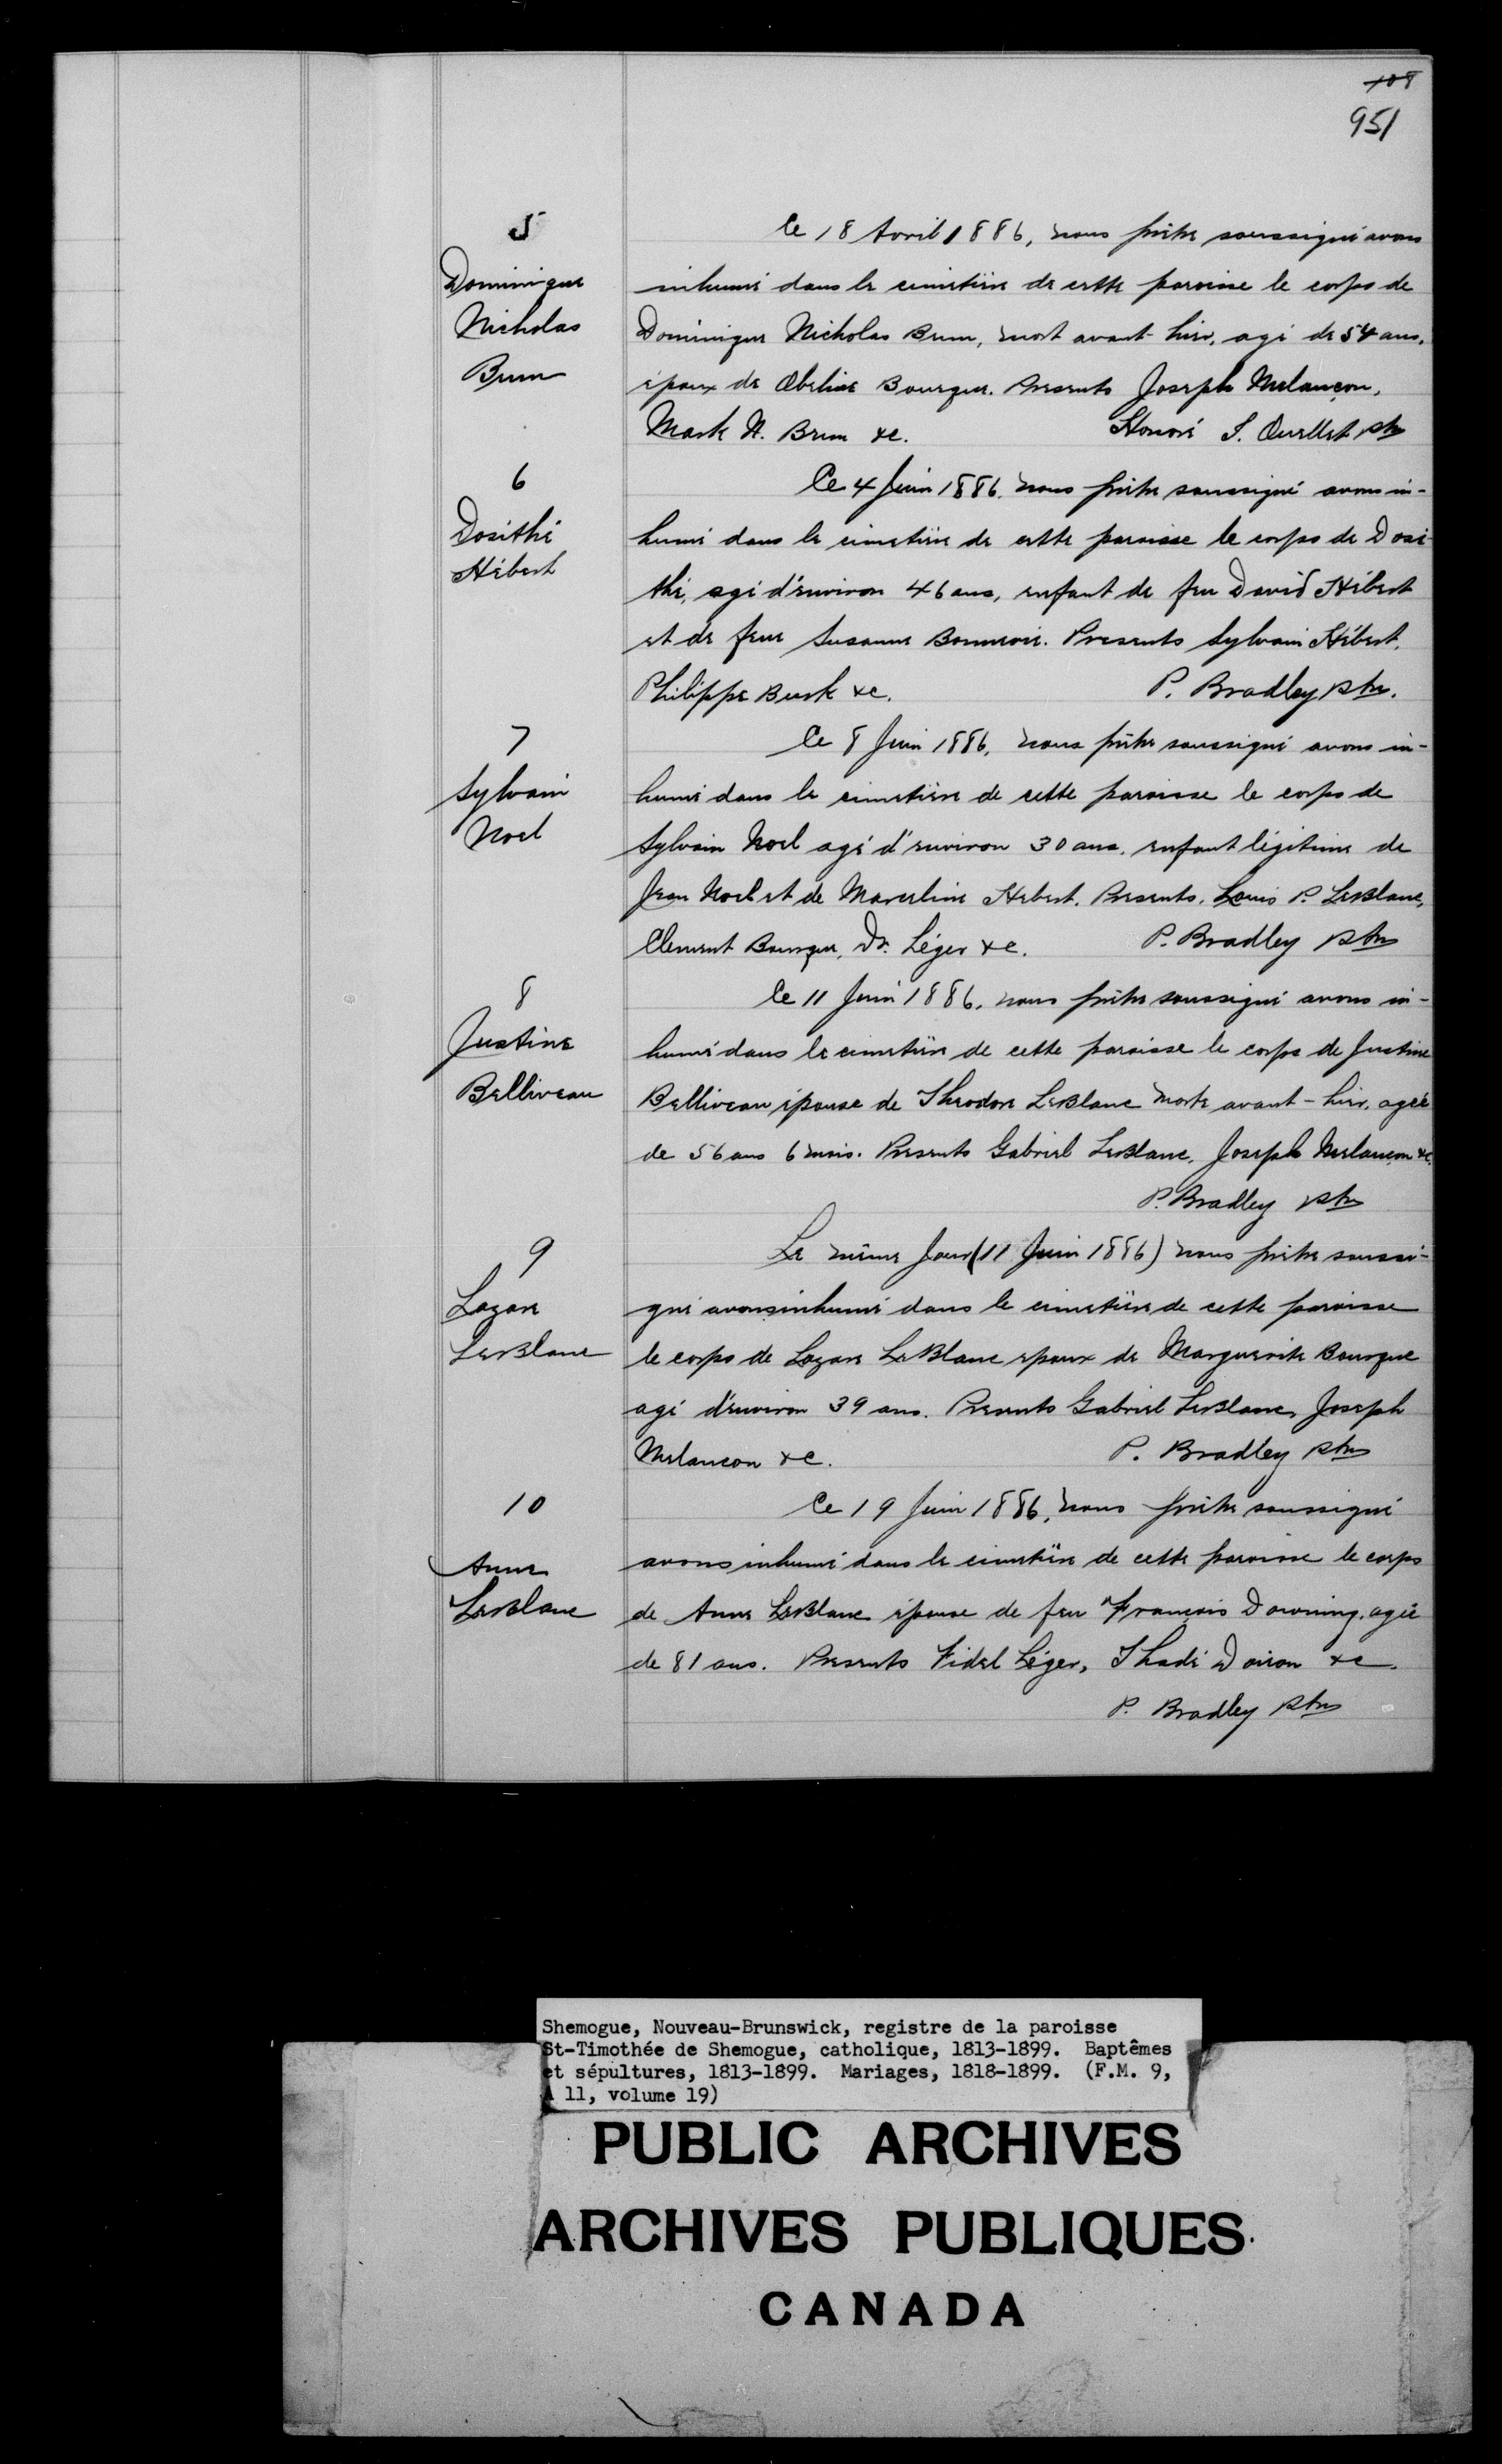 108
951
5
Dominique
Nicholas
Brun
Ce 18 Avril 1886, nous prêtre soussigné avons
inhumé dans le cimetière de cette paroisse le corps de
Dominique Nicholas Brun, mort avant-hier, agé de 54 ans,
époux de Obeline Bourque. Presents Joseph Melançon,
Mark N. Brun &c. Honoré S. Ouellet ptre
6
Dosithé
Hébert
Ce 4 Juin 1886, nous prêtre soussigné avons in-
humé dans le cimetière de cette paroisse le corps de Dosi
thé, agé d'environ 46 ans, enfant de feu David Hébert
et de feue Susanne Bonnevie. Presents Sylvain Hébert,
Philippe Burk &c. P. Bradley ptre.
7
Sylvain
Noel
Ce 8 Juin 1886, nous prêtre soussigné avons in-
humé dans le cimetière de cette paroisse le corps de
Sylvain Noel agé d'environ 30 ans, enfant légitime de
Jean Noel et de Marceline Hebert. Presents, Louis P. LeBlanc,
Clement Bourque, Dr. Léger &c. P. Bradley ptre
8
Justine
Belliveau
Ce 11 Juin 1886, nous prêtre soussigné avons in-
humé dans le cimetière de cette paroisse le corps de Justine
Belliveau épouse de Theodore LeBlanc morte avant-hier, agée
de 56 ans 6 mois. Presents Gabriel LeBlanc, Joseph Melançon &c.
P. Bradley ptre
9
Lazare
LeBlanc
Le même Jour (11 Juin 1886) nous prêtre soussi-
gné avons inhumé dans le cimetière de cette paroisse
le corps de Lazare LeBlanc epoux de Marguerite Bourque
agé d'environ 39 ans. Presents Gabriel LeBlanc, Joseph
Melancon &c. P. Bradley ptre
10
Anne
LeBlanc
Ce 19 Juin 1886, nous prêtre soussigné
avons inhumé dans le cimetière de cette paroisse le corps
de Anne LeBlanc épouse de feu François Downing, agée
de 81 ans. Presents Fidel Léger, Thadé Doiron &c.
P. Bradley ptre
Shemogue, Nouveau-Brunswick, registre de la paroisse
St-Timothée de Shemogue, catholique, 1813-1899. Baptêmes
et sépultures, 1813-1899. Mariages, 1818-1899. (F.M. 9,
A 11, volume 19)
PUBLIC ARCHIVES
ARCHIVES PUBLIQUES
CANADA